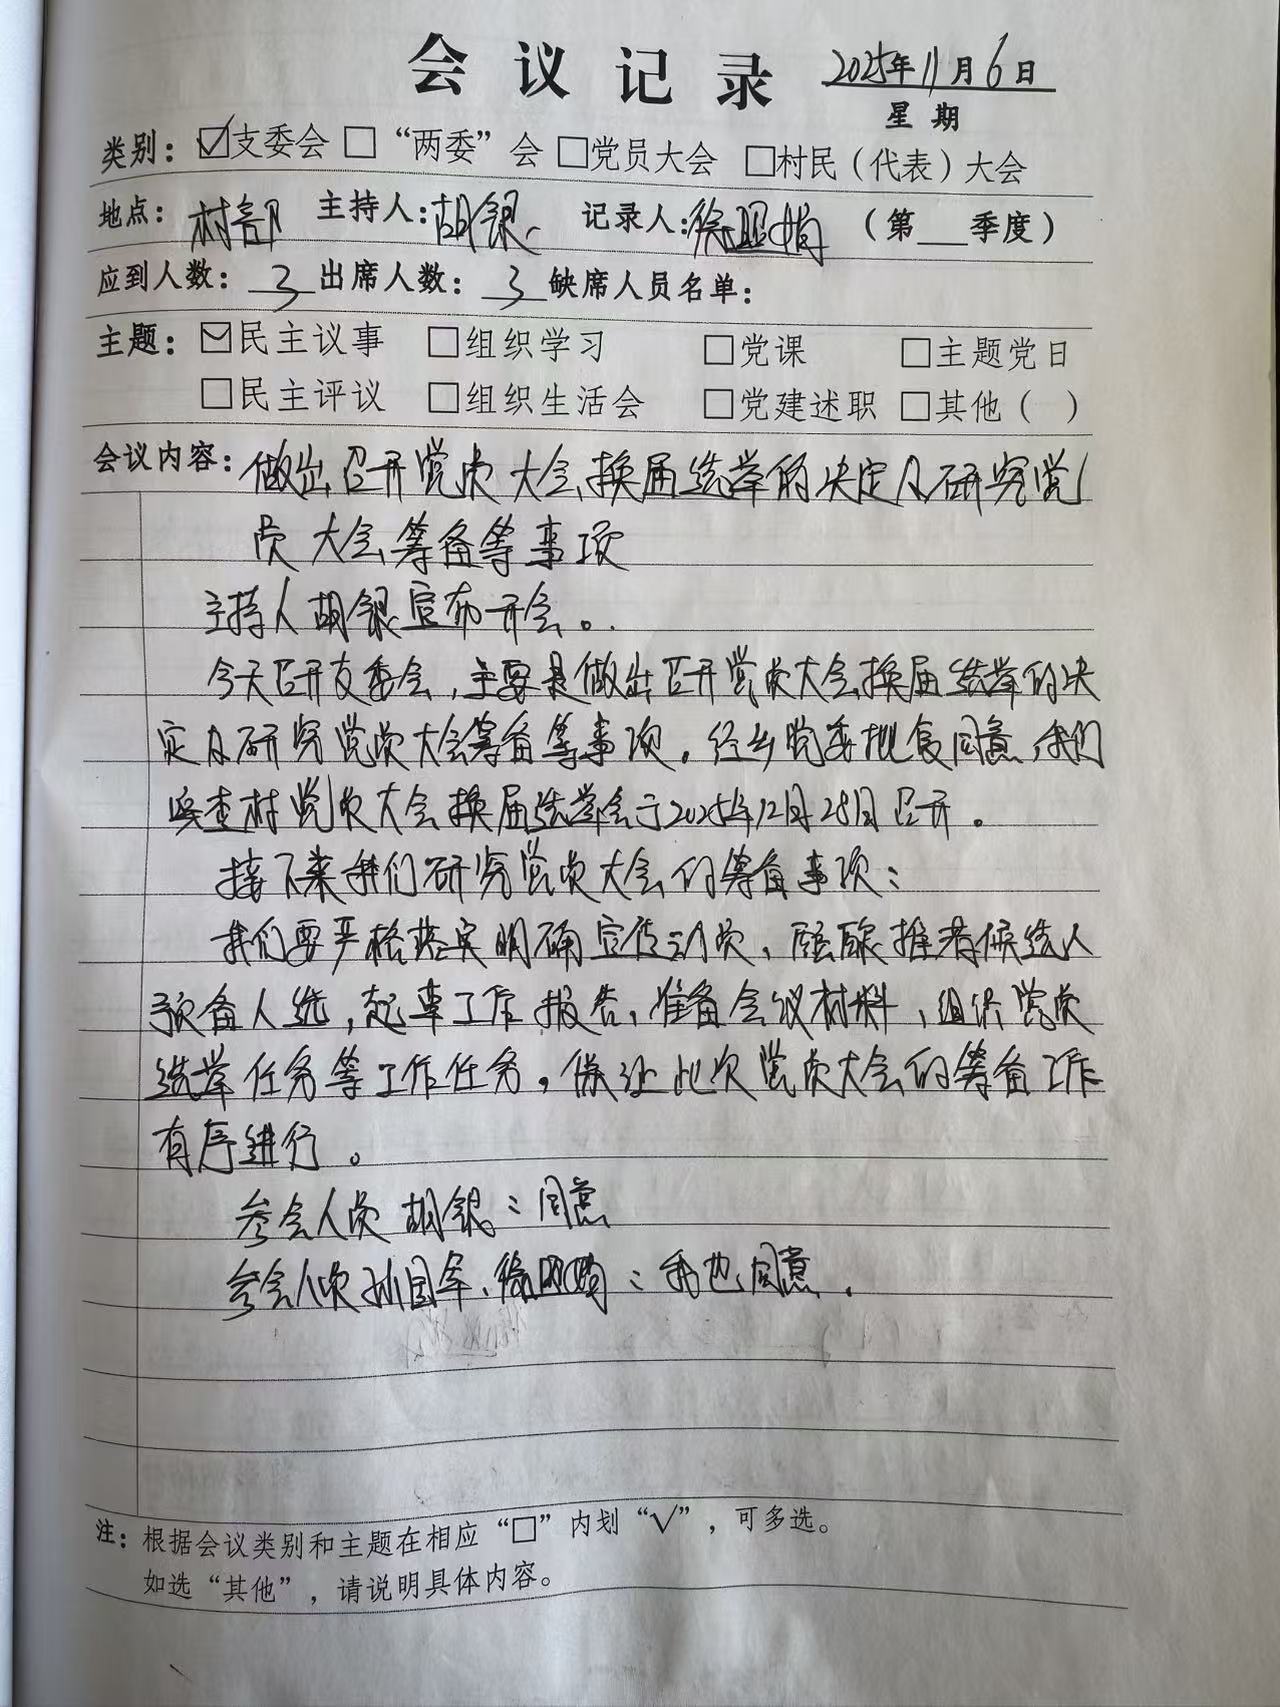 会议记录 2025年11月6日
星期
类别：☑支委会 □“两委”会 □党员大会 □村民（代表）大会
地点：村部 主持人：胡银 记录人：徐昭娟 （第___季度）
应到人数：3 出席人数：3 缺席人员名单：
主题：☑民主议事 □组织学习 □党课 □主题党日
□民主评议 □组织生活会 □党建述职 □其他（ ）
会议内容：做出召开党员大会换届选举的决定及研究党
员大会筹备等事项
主持人胡银宣布开会。
今天召开支委会，主要是做出召开党员大会换届选举的决
定及研究党员大会筹备等事项。经乡党委批复同意，我们
查村党员大会换届选举会于2025年12月28日召开。
接下来我们研究党员大会的筹备事项：
我们要严格落实明确宣传动员、酝酿推荐候选人
预备人选，起草工作报告，准备会议材料，组织党员
选举任务等工作任务，保证此次党员大会的筹备工作
有序进行。
参会人员胡银：同意
参会人员孙国军、徐昭娟：我也同意。
注：根据会议类别和主题在相应“□”内划“√”，可多选。
如选“其他”，请说明具体内容。